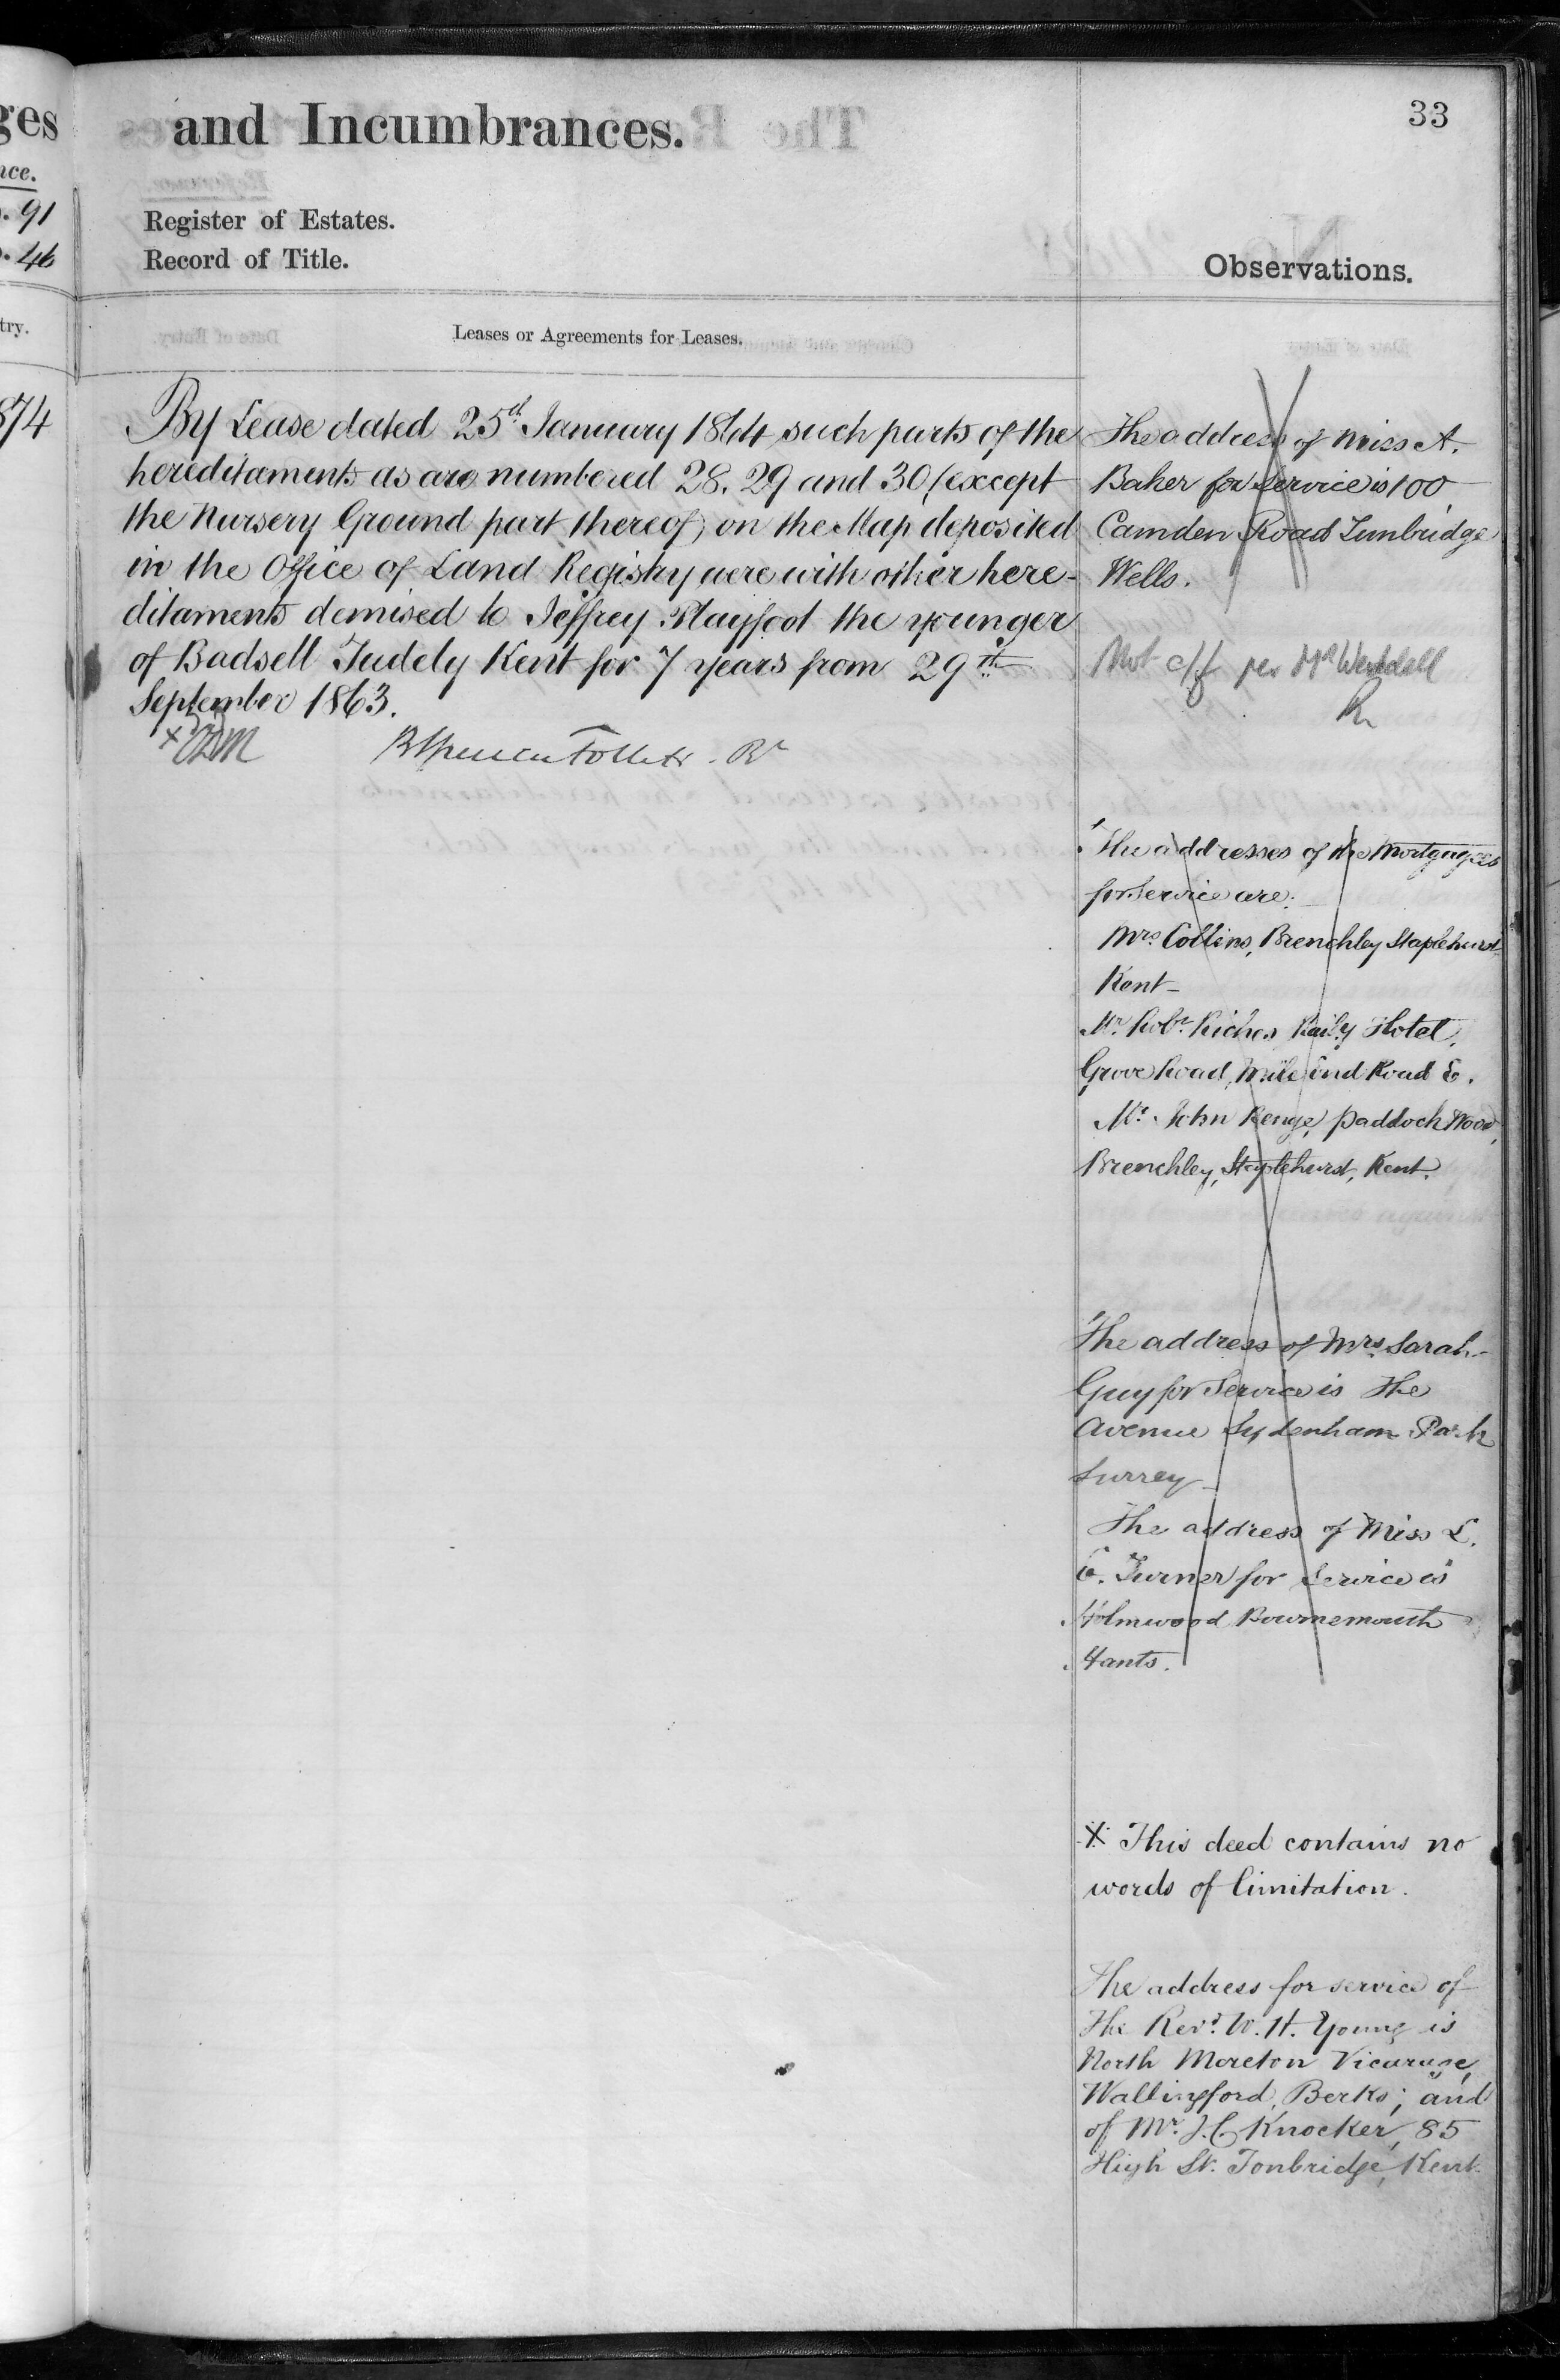 ges
nce.
. 91
. 46
try.
874
and Incumbrances.
33
Register of Estates.
Record of Title.
Observations.
Leases or Agreements for Leases.
By Lease dated 25th January 1864 such parts of the
hereditaments as are numbered 28. 29 and 30 (except
the Nursery Ground part thereof) on the Map deposited
in the Office of Land Registry were with other here-
ditaments demised to Jeffrey Playfoot the younger
of Badsell Tudely Kent for 7 years from 29th
September 1863.
B Spencer Follett. Rr
The address of Miss A.
Baker for Service is 100
Camden Road Tunbridge
Wells.
Not off per Mr
The addresses of the Mortgagees
for Service are:
Mrs. Collins, Brenchley Staplehurst
Kent-
Mr. Robt. Riches Raily Hotel,
Grove Road, Mile End Road E.
Mr. John Kenge, Paddock Wood,
Brenchley, Staplehurst, Kent.
The address of Mrs. Sarah
Guy for Service is The
Avenue Sydenham Park
Surrey-
The address of Miss L.
E. Turner for Service is
Holmwood Bournemouth
Hants.
X This deed contains no
words of limitation.
The address for service of
The Revd. W. H. Young is
North Moreton Vicarage,
Wallingford, Berks; and
of Mr. J. C. Knocker, 85
High St. Tonbridge, Kent.